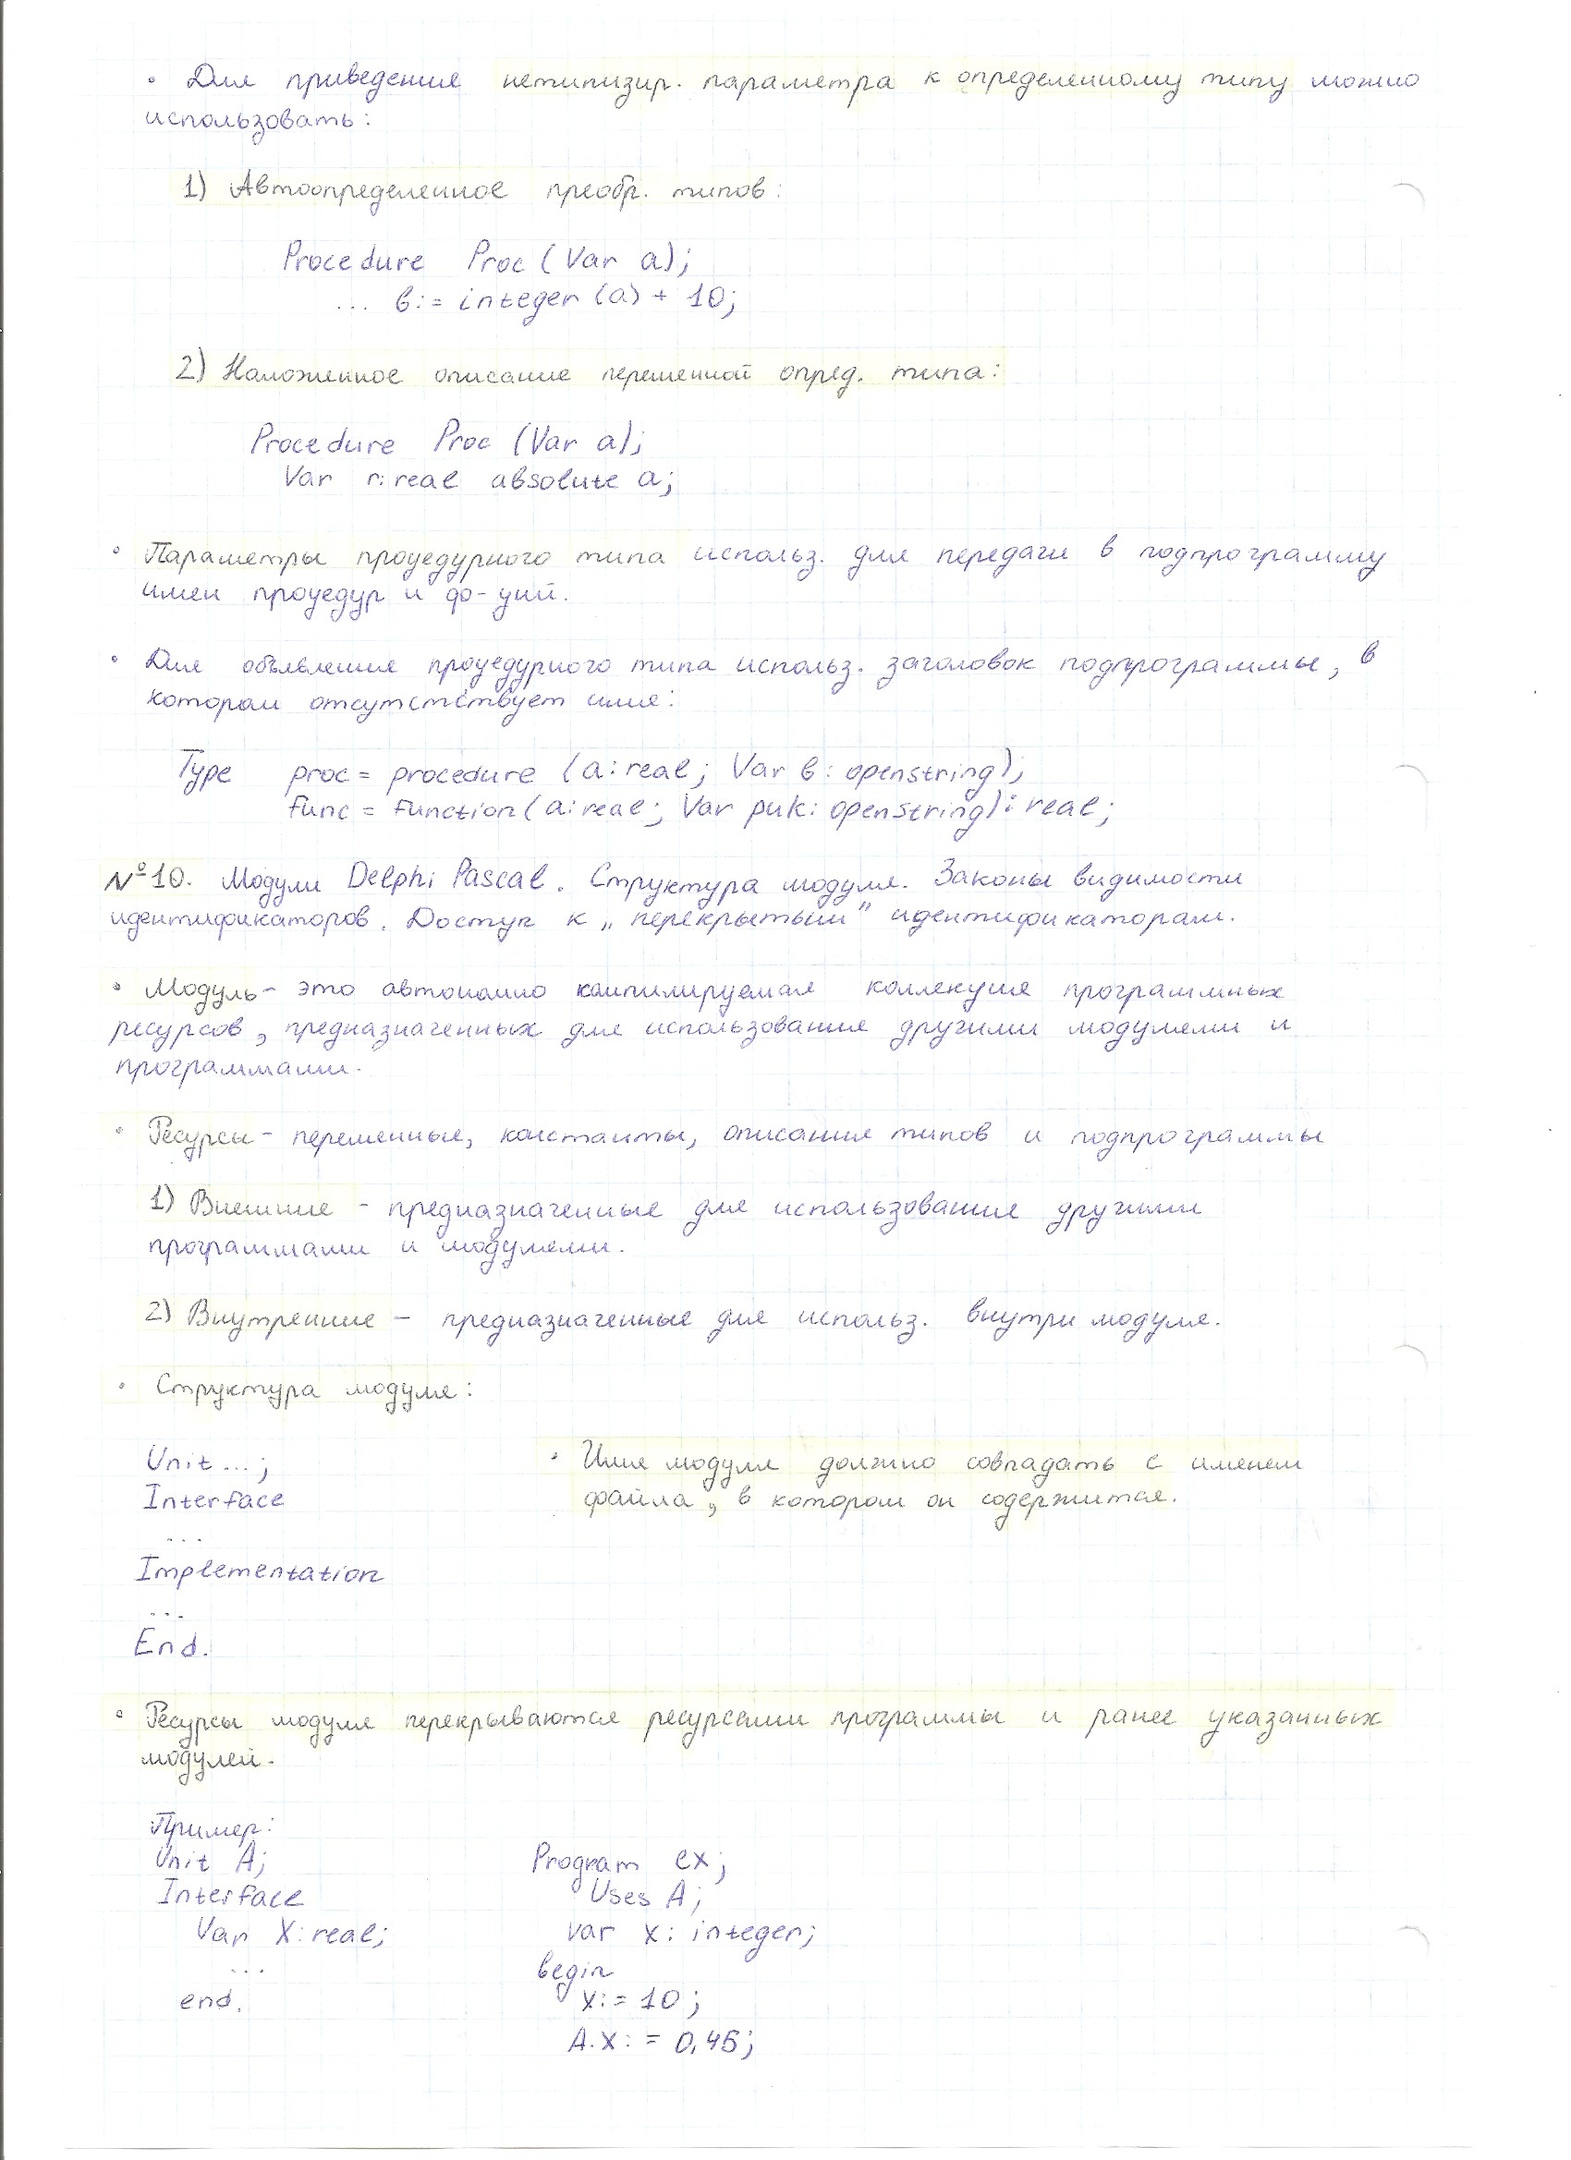 • Для приведения нетипизир. параметра к определенному типу можно
использовать:
1) Автоопределенное преобр. типов:
Procedure Proc (Var a);
... b:= integer (a) + 10;
2) Наложенное описание переменной опред. типа:
Procedure Proc (Var a);
Var r: real absolute a;
• Параметры процедурного типа использ. для передачи в подпрограмму
имен процедур и ф-ций.
• Для объявления процедурного типа использ. заголовок подпрограммы, в
котором отсутствует имя:
Type proc = procedure (a: real; Var b: openstring);
func = function (a: real; Var puk: openstring): real;
№10. Модули Delphi Pascal. Структура модуля. Законы видимости
идентификаторов. Доступ к „перекрытым" идентификаторам.
• Модуль - это автономно компилируемая коллекция программных
ресурсов, предназначенных для использования другими модулями и
программами.
• Ресурсы - переменные, константы, описания типов и подпрограммы
1) Внешние - предназначенные для использования другими
программами и модулями.
2) Внутренние - предназначенные для использ. внутри модуля.
• Структура модуля:
Unit ...;
Interface
...
Implementation
...
End.
• Имя модуля должно совпадать с именем
файла, в котором он содержится.
• Ресурсы модуля перекрываются ресурсами программы и ранее указанных
модулей.
Пример:
Unit A;
Interface
Var X: real;
...
end.
Program ex;
Uses A;
var x: integer;
begin
x:= 10;
A.x:= 0,45;